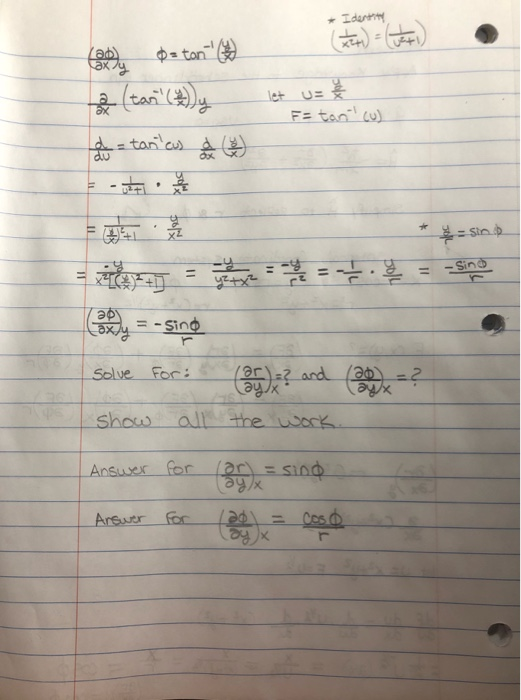 * Identity
(∂φ/∂x)_y φ = tan⁻¹(y/x) (1/(x²+1)) = (1/(u²+1))
∂/∂x (tan⁻¹(y/x))_y let u = y/x
F = tan⁻¹(u)
d/du = tan⁻¹(u) d/dx (y/x)
= - 1/(u²+1) · y/x²
= 1/((y/x)²+1) · y/x² * y/r = sin φ
= -y/(x²[(y/x)²+1]) = -y/(y²+x²) = -y/r² = -1/r · y/r = -sinφ/r
(∂φ/∂x)_y = -sinφ/r
Solve For: (∂r/∂y)_x = ? and (∂φ/∂y)_x = ?
Show all the work.
Answer for (∂r/∂y)_x = sinφ
Answer For (∂φ/∂y)_x = cosφ/r